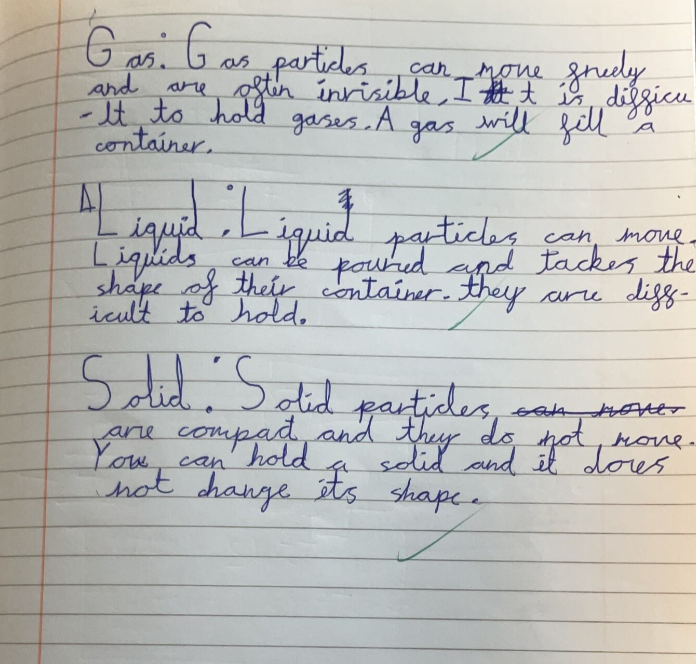 Gas: Gas particles can move freely
and are often invrisible. It is difficu
-lt to hold gases. A gas will fill a
container.
Liquid: Liquid particles can move.
Liquids can be poured and tackes the
shape of their container. they are diff-
icult to hold.
Solid: Solid particles can move
are compact and they do not move.
You can hold a solid and it does
not change its shape.